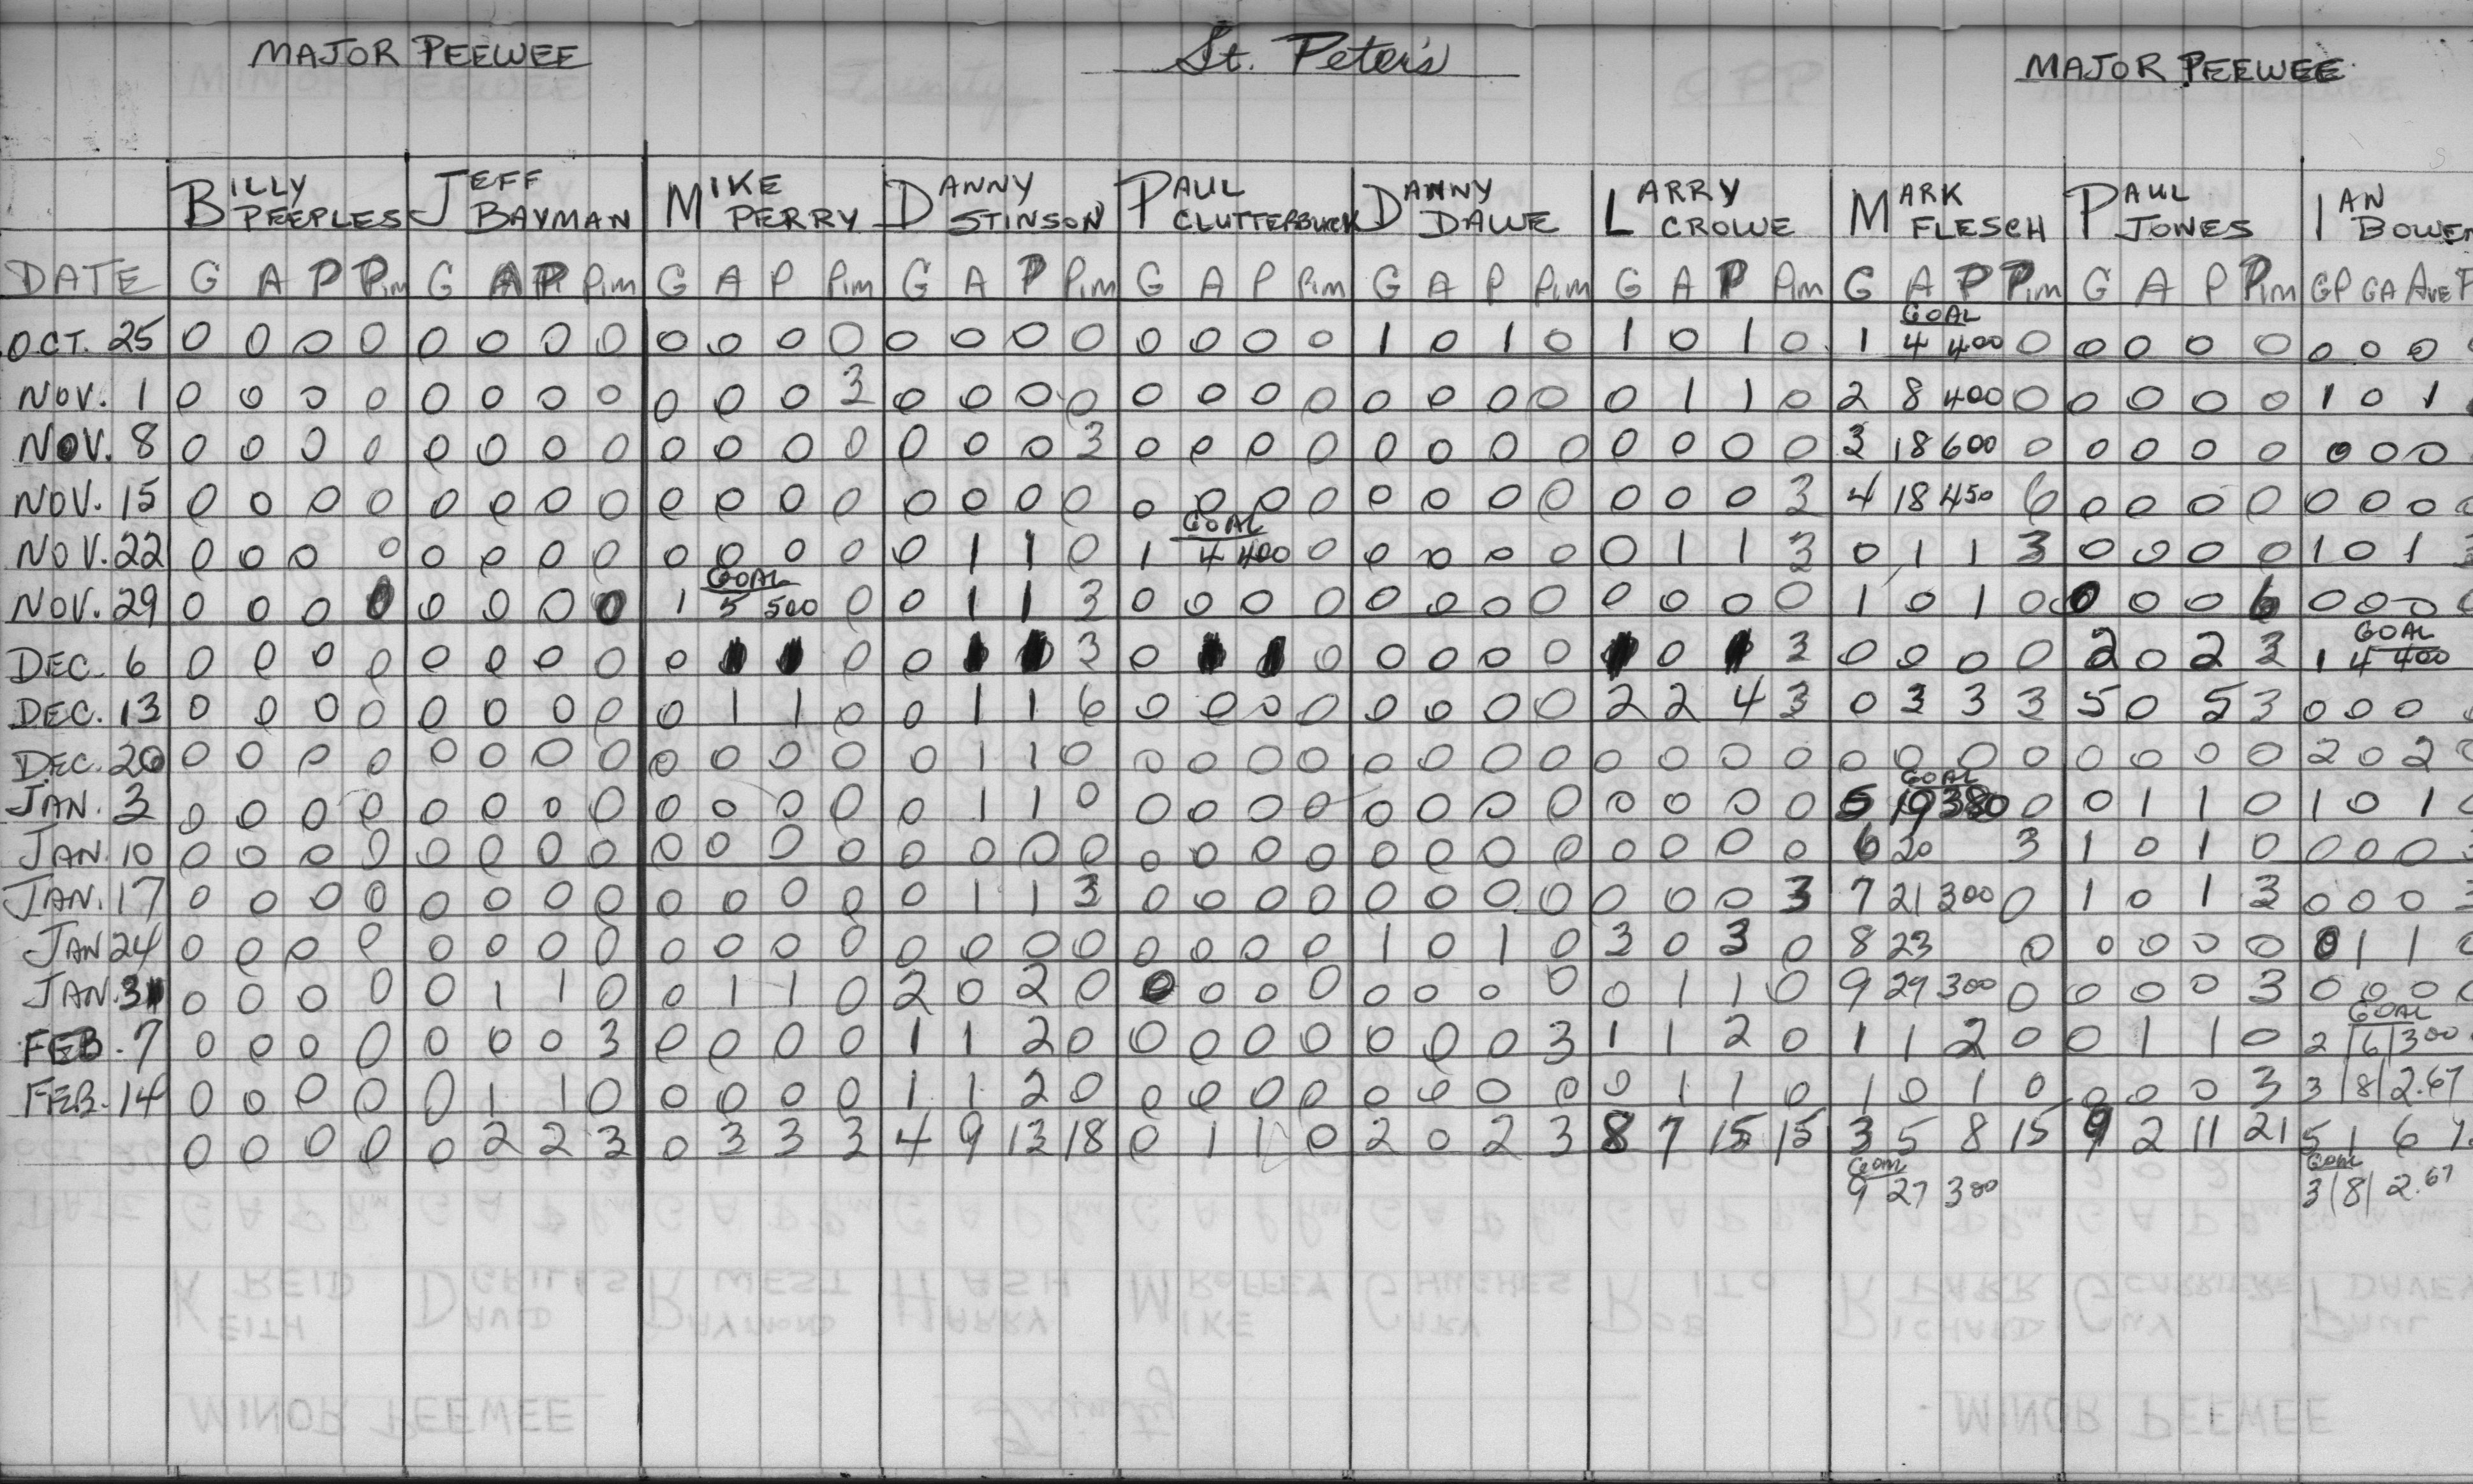 MAJOR PEEWEE St. Peter's MAJOR PEEWEE
BILLY PEEPLES JEFF BAYMAN MIKE PERRY DANNY STINSON PAUL CLUTTERBUCK DANNY DAWE LARRY CROWE MARK FLESCH PAUL JONES IAN BOWE
DATE G A P Pim G A P Pim G A P Pim G A P Pim G A P Pim G A P Pim G A P Pim G A P Pim G A P Pim GP GA AVE P
GOAL
OCT. 25 0 0 0 0 0 0 0 0 0 0 0 0 0 0 0 0 0 0 0 0 1 0 1 0 1 0 1 0 1 4 400 0 0 0 0 0 0 0 0
NOV. 1 0 0 0 0 0 0 0 0 0 0 0 3 0 0 0 0 0 0 0 0 0 0 0 0 0 1 1 0 2 8 400 0 0 0 0 0 1 0 1
NOV. 8 0 0 0 0 0 0 0 0 0 0 0 0 0 0 0 3 0 0 0 0 0 0 0 0 0 0 0 0 3 18 600 0 0 0 0 0 0 0 0
NOV. 15 0 0 0 0 0 0 0 0 0 0 0 0 0 0 0 0 0 0 0 0 0 0 0 0 0 0 0 3 4 18 450 6 0 0 0 0 0 0 0
GOAL
NOV. 22 0 0 0 0 0 0 0 0 0 0 0 0 0 1 1 0 1 4 400 0 0 0 0 0 0 1 1 3 0 1 1 3 0 0 0 0 1 0 1 3
GOAL
NOV. 29 0 0 0 0 0 0 0 0 1 5 500 0 0 1 1 3 0 0 0 0 0 0 0 0 0 0 0 0 1 0 1 0 0 0 0 6 0 0 0
GOAL
DEC. 6 0 0 0 0 0 0 0 0 0 0 0 3 0 0 0 0 0 0 0 3 0 0 0 0 2 0 2 3 1 4 400
DEC. 13 0 0 0 0 0 0 0 0 0 1 1 0 0 1 1 6 0 0 0 0 0 0 0 0 2 2 4 3 0 3 3 3 5 0 5 3 0 0 0
DEC. 20 0 0 0 0 0 0 0 0 0 0 0 0 0 1 1 0 0 0 0 0 0 0 0 0 0 0 0 0 0 0 0 0 0 0 0 0 2 0 2 0
GOAL
JAN. 3 0 0 0 0 0 0 0 0 0 0 0 0 0 1 1 0 0 0 0 0 0 0 0 0 0 0 0 0 5 19 380 0 0 1 1 0 1 0 1
JAN. 10 0 0 0 0 0 0 0 0 0 0 0 0 0 0 0 0 0 0 0 0 0 0 0 0 0 0 0 0 6 20 3 1 0 1 0 0 0 0 3
JAN. 17 0 0 0 0 0 0 0 0 0 0 0 0 0 1 1 3 0 0 0 0 0 0 0 0 0 0 0 3 7 21 300 0 1 0 1 3 0 0 0 3
JAN 24 0 0 0 0 0 0 0 0 0 0 0 0 0 0 0 0 0 0 0 0 1 0 1 0 3 0 3 0 8 23 0 0 0 0 0 0 1 1
JAN. 31 0 0 0 0 0 1 1 0 0 1 1 0 2 0 2 0 0 0 0 0 0 0 0 0 0 1 1 0 9 29 300 0 0 0 0 3 0 0 0
GOAL
FEB. 7 0 0 0 0 0 0 0 3 0 0 0 0 1 1 2 0 0 0 0 0 0 0 0 3 1 1 2 0 1 1 2 0 0 1 1 0 2 6 300
FEB. 14 0 0 0 0 0 1 1 0 0 0 0 0 1 1 2 0 0 0 0 0 0 0 0 0 0 1 1 0 1 0 1 0 0 0 0 3 3 8 2.67
0 0 0 0 0 2 2 3 0 3 3 3 4 9 13 18 0 1 1 0 2 0 2 3 8 7 15 15 3 5 8 15 9 2 11 21 5 1 6
GOAL GOAL
9 27 300 3 8 2.67